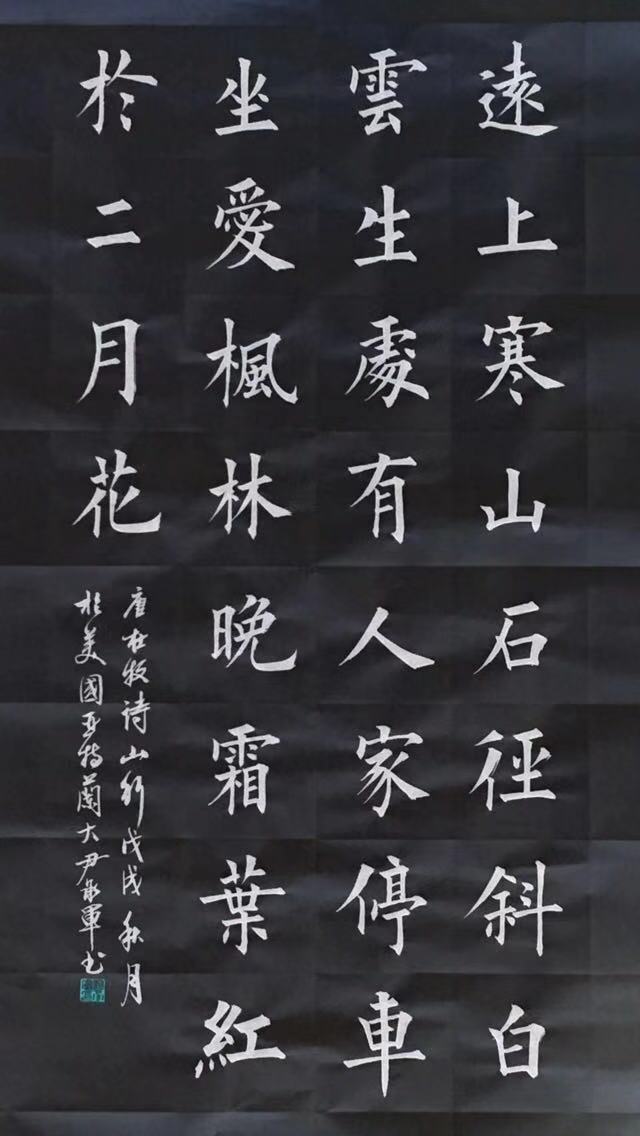 遠上寒山石徑斜白
雲生處有人家停車
坐愛楓林晚霜葉紅
於二月花
唐杜牧詩山行戊戌秋月
於美國亞特蘭大尹
軍書